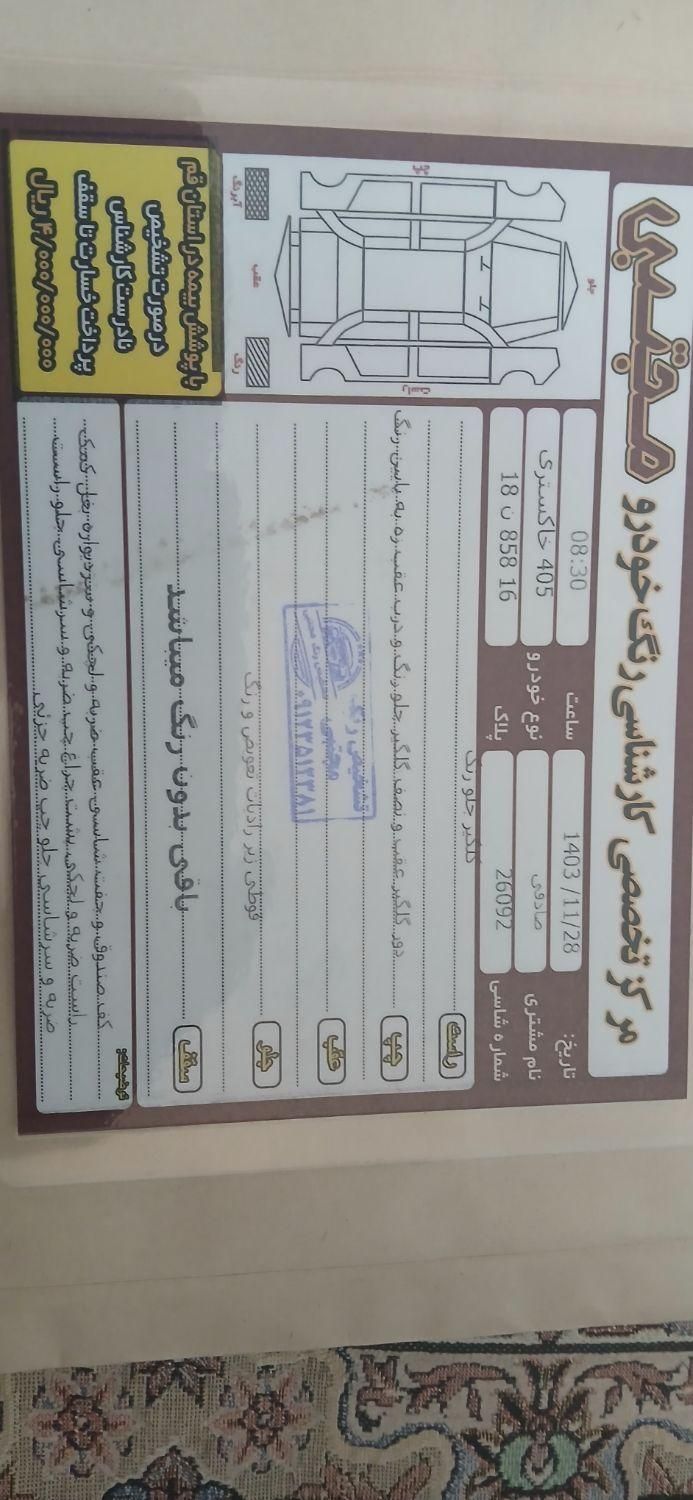 مجتبی
مرکز تخصصی کارشناسی رنگ خودرو
تاریخ: 1403 /11/28
ساعت 08:30
نام مشتری صادقی
نوع خودرو 405 خاکستری
شماره شاسی 26092
پلاک 18 ن 858 16
راست گلگیر جلو رنگ
چپ دور گلگیر عقب و نصف گلگیر جلو رنگ و درب عقب ره به پایین رنگ
عقب
جلو قوطی زیر رادیات تعویض و رنگ
سقف باقی بدون رنگ میباشد
تشخیص رنگ
مجتبی
۰۹۱۲۳۵۱۲۳۸۱
توضیحات:
کف صندوق و جفت شاسی عقب ضربه و لچکی و سردیواره بغل کمک
راست ضربه و لچکی پشت چراغ چپ ضربه و سرشاسی جلو راست
ضربه و سرشاسی جلو چپ ضربه جزئی
جلو
عقب
چپ
راست
آبرنگ
رنگ
با پوشش بیمه در استان قم
در صورت تشخیص
نادرست کارشناس
پرداخت خسارت تا سقف
۴/۰۰۰/۰۰۰/۰۰۰ ریال